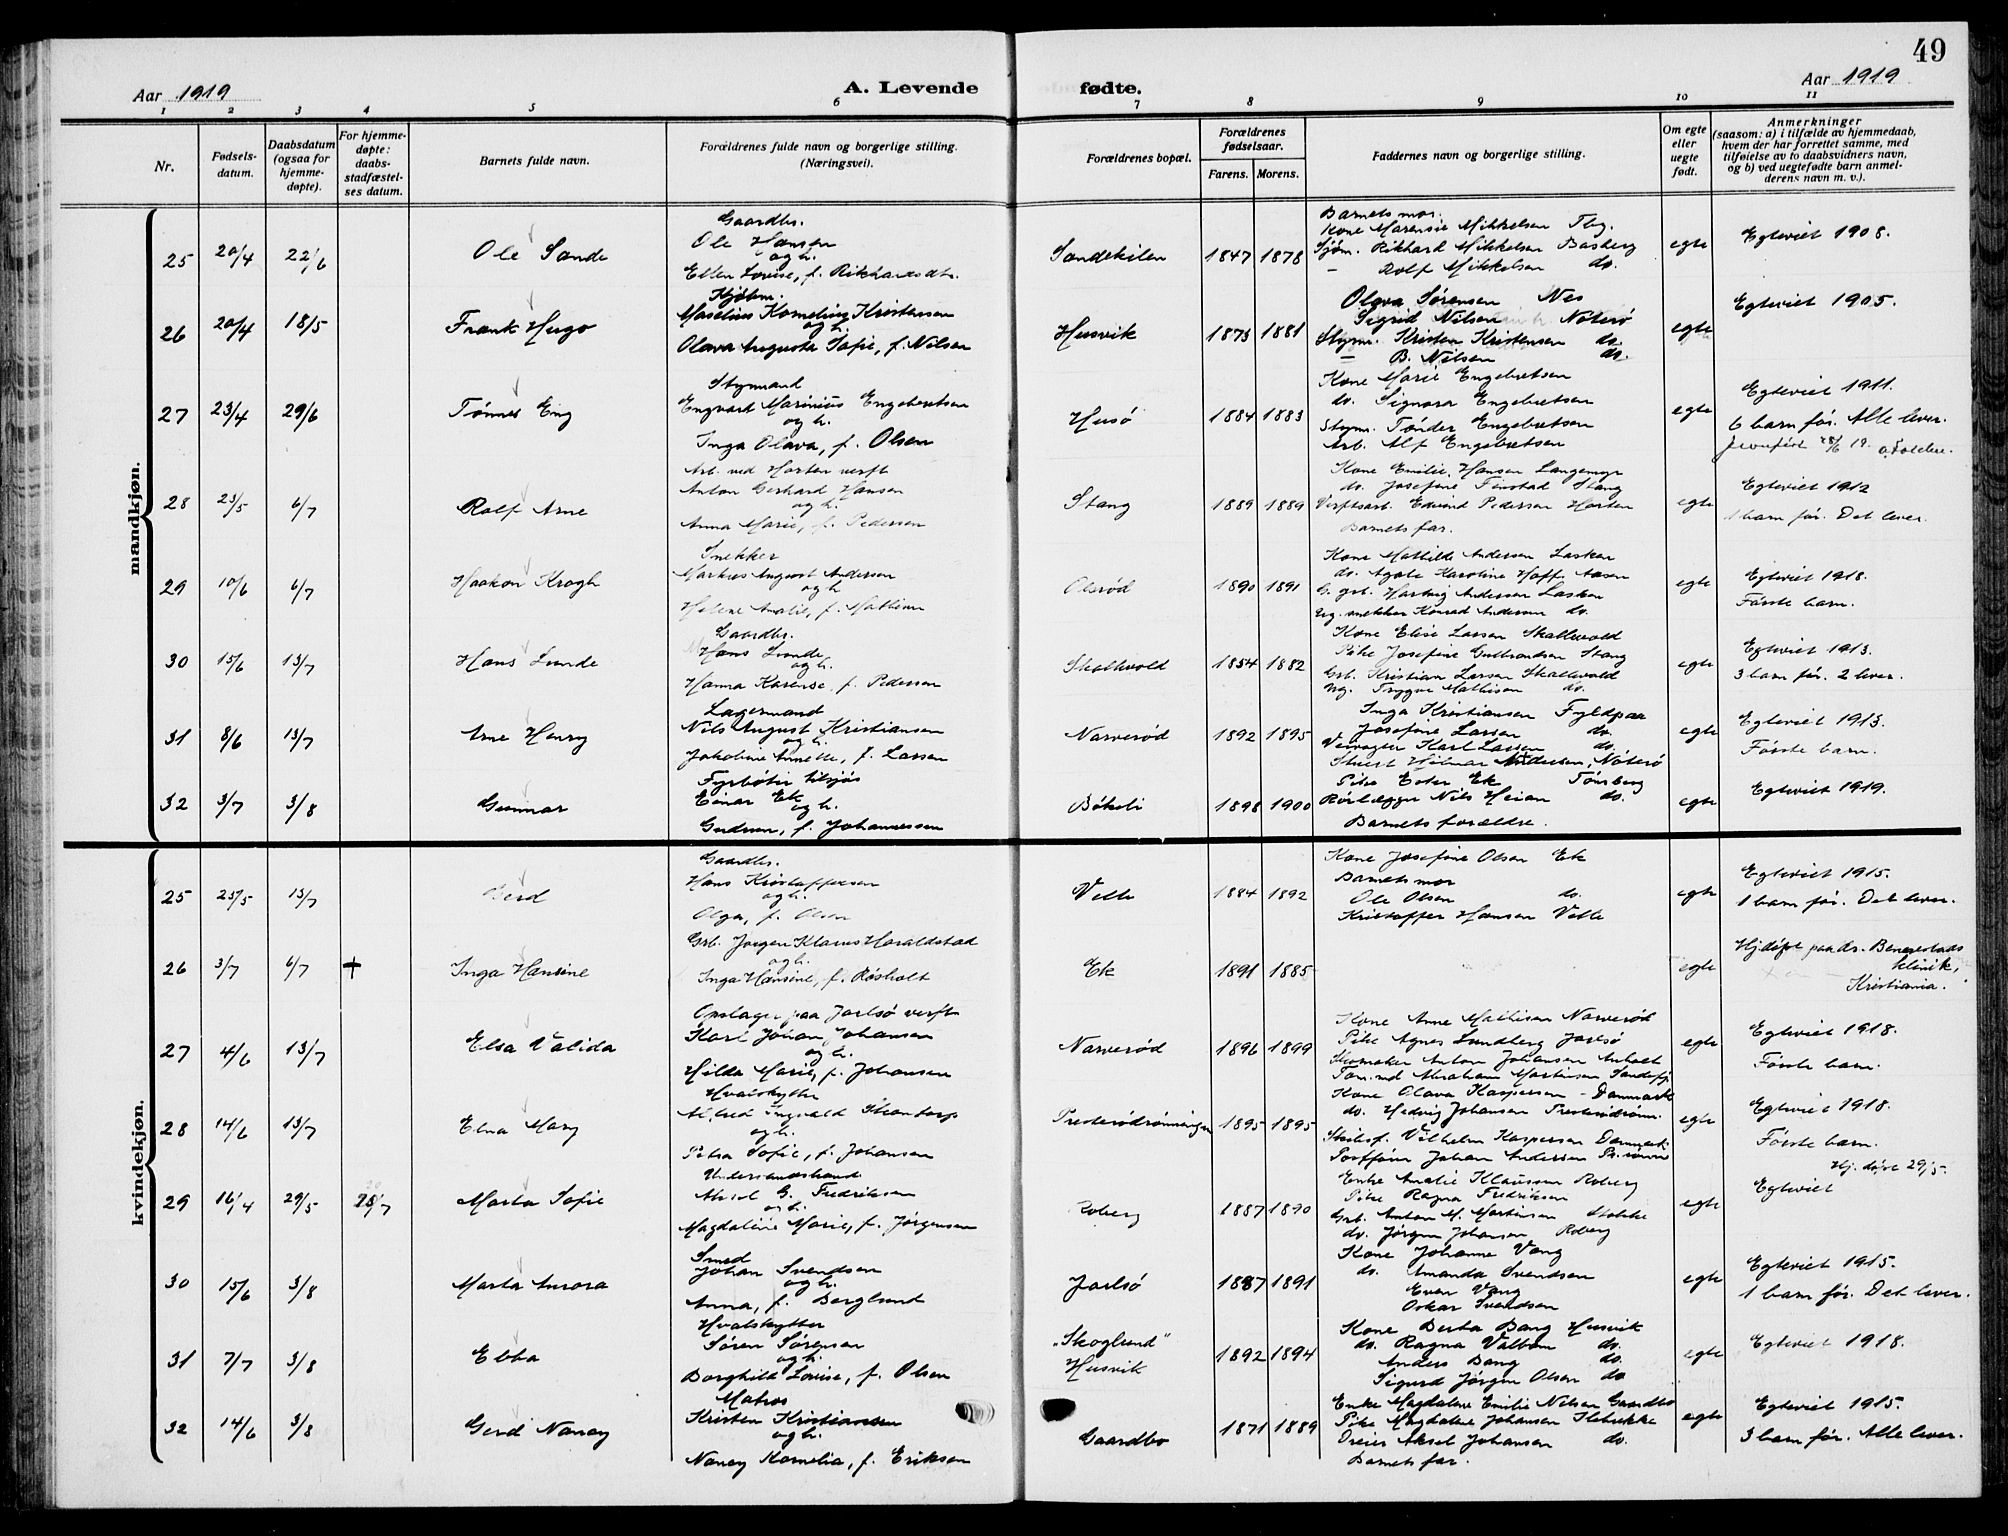 49
Aar 1919
A. Levende
fødte.
Aar 1919
1 2 3 4 5 6 7 8 9 10 11
Nr.
Fødsels-
datum.
Daabsdatum
(ogsaa for
hjemme-
døpte).
For hjemme-
døpte:
daabs-
stadfæstel-
ses datum.
Barnets fulde navn.
Forældrenes fulde navn og borgerlige stilling.
(Næringsvei).
Forældrenes bopæl.
Forældrenes
fødselsaar.
Farens. Morens.
Faddernes navn og borgerlige stilling.
Om egte
eller
uegte
født.
Anmerkninger
(saasom: a) i tilfælde av hjemmedaab,
hvem der har forrettet samme, med
tilføielse av to daabsvidners navn,
og b) ved uegtefødte barn anmel-
derens navn m. v.).
mandkjøn.
25 20/4 22/6 Ole Sande
Gaardbr.
Ole Hansen
og h.
Ellen Lovise, f. Rikhardsdtr.
Sandekilen 1847 1878
Barnets mor.
Kone Marensie Mikkelsen Tbg.
Sjøm. Rikhard Mikkelsen Basberg
— Rolf Mikkelsen do.
egte
Egteviet 1908.
26 20/4 18/5 Frank Hugo
Kjøbm.
Maselius Kornelius Kristensen
og h.
Olava Augusta Sofie, f. Nilsen
Husvik 1873 1881
Olava Sørensen Nes
Sigrid Nilsen Nøterø
Styrm. Kristen Kristensen do.
— B. Nilsen do.
egte
Egteviet 1905.
27 23/4 29/6 Tønnes Eng
Styrmand
Engvard Marinius Engebretsen
og h.
Inga Olava, f. Olsen
Husø 1884 1883
Kone Marie Engebretsen
do. Signora Engebretsen
Styrm. Tønder Engebretsen
Arb. Alf Engebretsen
egte
Egteviet 1911.
6 barn før. Alle lever.
28 23/5 6/7 Rolf Arne
Arb. ved Horten verft
Anton Gerhard Hansen
og h.
Anna Marie, f. Pedersen
Stang 1889 1889
Kone Emilie Hansen Langemyr
do. Josefine Finstad Stang
Verftsarb. Edvind Pedersen Horten
Barnets far.
egte
Egteviet 1912
1 barn før. Det lever.
29 10/6 6/7 Haakon Krogh
Snekker
Markus August Andersen
og h.
Helene Amalie, f. Mathisen
Olsrød 1890 1891
Kone Mathilde Andersen Lasken
do. Agate Karoline Hoff Aasen
G. grb. Hartvig Andersen Lasken
Ug. snekker Konrad Andersen do.
egte
Egteviet 1918.
Første barn.
30 15/6 13/7 Hans Lunde
Gaardbr.
Hans Lunde
og h.
Hanna Karense, f. Pedersen
Skallevold 1854 1882
Kone Elise Larsen Skallevold
Pike Josefine Gulbrandsen Stang
Grb. Kristian Larsen Skallevold
Ug. Trygve Mathisen do.
egte
Egteviet 1913.
3 barn før. 2 lever.
31 8/6 13/7 Arne Henry
Lagermand
Nils August Kristiansen
og h.
Jakobine Annette, f. Larsen
Narverød 1892 1895
Inga Kristiansen Fyldpaa
Josefine Larsen do.
Veivogter Karl Larsen do.
Stuert Hilmar Andersen, Nøterø
egte
Egteviet 1913.
Første barn.
32 3/7 3/8 Gunnar
Fyrbøter tilsjøs
Einar Ek
og h.
Gudrun, f. Johannessen
Bøkeli 1898 1900
Pike Ester Ek Tønsberg
Rørlægger Nils Heian do.
Barnets forældre.
egte
Egteviet 1919.
kvindekjøn.
25 25/5 13/7 Gerd
Gaardbr.
Hans Kristoffersen
og h.
Olga, f. Olsen
Velle 1884 1892
Kone Josefine Olsen Ek
Barnets mor
Ole Olsen do.
Kristoffer Hansen Velle
egte
Egteviet 1915.
1 barn før. Det lever.
26 3/7 6/7 + Inga Hansine
Grb. Jørgen Klaus Haraldstad
og h.
Inga Hansine, f. Røsholt
Ek 1891 1885
egte
Hj.døpt paa dr. Bennestads
klinik,
Kristiania.
27 4/6 13/7 Elsa Valida
Opslager paa Jarlsø verft
Karl Johan Johansen
og h.
Hilda Marie, f. Johansen
Narverød 1896 1899
Kone Anne Mathisen Narverød
Pike Agnes Lundberg Jarlsø
Skomaker Anton Johansen Anholt
Abraham Martinsen Sandefj.
egte
Egteviet 1918.
Første barn.
28 14/6 13/7 Elna Mary
Hvalskytter
Alfred Ingvald
og h.
Petra Sofie, f. Johansen
Presterødrønningen 1895 1895
Kone Olava Kaspersen - Danmark
do. Hedvig Johansen Presterødrønn.
Skibsf. Vilhelm Kaspersen Danmark
Johan Andersen Pr. rønn.
egte
Egteviet 1918.
Første barn.
29 16/4 29/5 20/7 Marta Sofie
Aksel G. Fredriksen
og h.
Magdalene Marie, f. Jørgensen
Roberg 1887 1890
Enke Amalie Klausen Roberg
Pike Ragna Fredriksen
Grb. Anton M. Martinsen Stokke
do. Jørgen Johansen Roberg
egte
Hj. døpt 29/5-
Egteviet
30 15/6 3/8 Marta Aurora
Smed
Johan Svendsen
og h.
Anna, f. Berglund
Jarlsø 1887 1891
Kone Johanne Vang
do. Amanda Svendsen
Even Vang
Oskar Svendsen
egte
Egteviet 1915.
1 barn før. Det lever.
31 7/7 3/8 Ebba
Hvalskytter
Søren Sørensen
og h.
Borghild Lovise, f. Olsen
"Skoglund"
Husvik 1892 1894
Kone Berta Bang Husvik
do. Ragna Valbom do.
Anders Bang do.
Sigurd Jørgen Olsen do
egte
Egteviet 1918.
32 14/6 3/8 Gerd Nancy
Matros
Kristen Kristiansen
og h.
Nancy Kornelia, f. Eriksen
Gaardbo 1871 1889
Enke Magdalene Emilie Nilsen Gaardbo
Pike Magdalene Johansen Ilebrekke
Dreier Aksel Johansen do.
Barnets far.
egte
Egteviet 1915.
3 barn før. Alle lever.